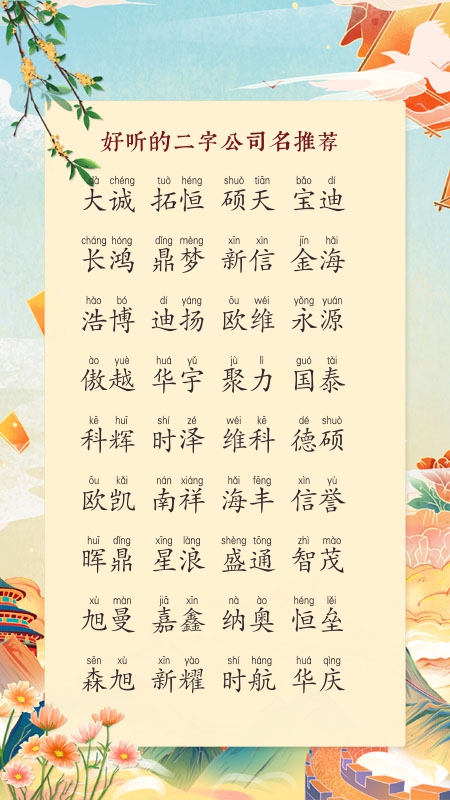 好听的二字公司名推荐
dà chéng tuò héng shuò tiān bǎo dí
大诚 拓恒 硕天 宝迪
cháng hóng dǐng mèng xīn xìn jīn hǎi
长鸿 鼎梦 新信 金海
hào bó dí yáng ōu wéi yǒng yuán
浩博 迪扬 欧维 永源
ào yuè huá yǔ jù lì guó tài
傲越 华宇 聚力 国泰
kē huī shí zé wéi kē dé shuò
科辉 时泽 维科 德硕
ōu kǎi nán xiáng hǎi fēng xìn yù
欧凯 南祥 海丰 信誉
huī dǐng xīng làng shèng tōng zhì mào
晖鼎 星浪 盛通 智茂
xù màn jiā xīn nà ào héng lěi
旭曼 嘉鑫 纳奥 恒垒
sēn xù xīn yào shí háng huá qìng
森旭 新耀 时航 华庆